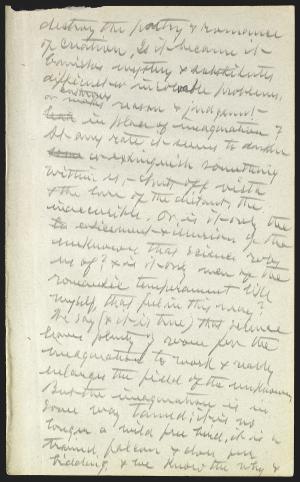 destroy the poetry & romance
of creation, Is it because it
banishes mystery & substitutes
difficult or insoluble problems,
or enthrones reason & judgment
in place of imagination?
At any rate it seems to darken
or extinguish something
within us, — shut off vista
& the lure of the distant, the
inaccessible. Or, is it only the
excitement & illusion of the
unknown that science robs
us of? & is it only men of the
romantic temperament like
myself, that feel in this way?
We say (& it is true) that science
leaves plenty of room for the
imagination to work & really
enlarges the field of the unknown,
But the imagination is in
some way tamed; it is no
longer a wild free bird, it is a
trained falcon & does our
bidding, & we know the why &